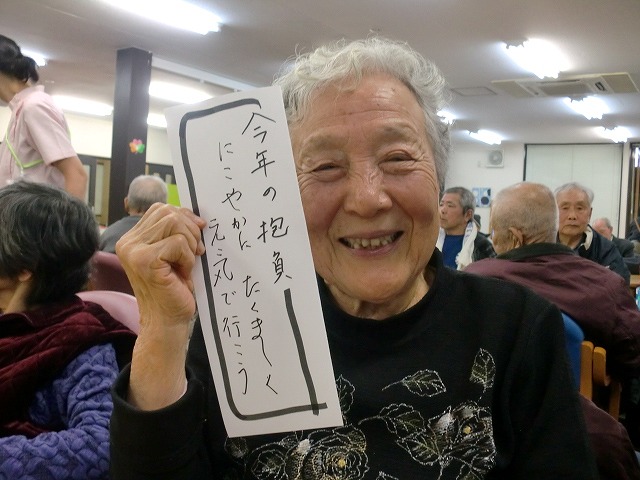 今年の抱負
たくましく
にこやかに
元気で行こう